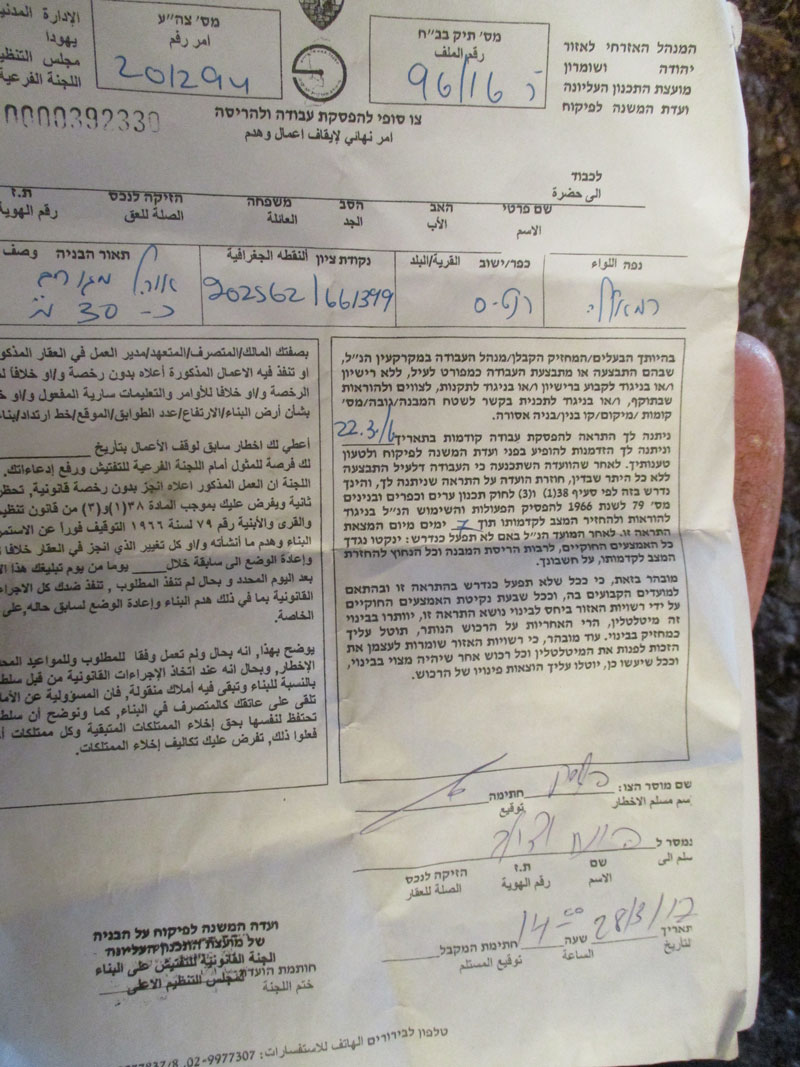 המנהל האזרחי לאזור
יהודה ושומרון
מועצת התכנון העליונה
ועדת המשנה לפיקוח
מס' תיק בב"ח
رقم الملف
96/16
מס' צה"ע
امر رقم
201294
الإدارة المدني
يهودا
مجلس التنظي
اللجنة الفرعية
0000392330
צו סופי להפסקת עבודה ולהריסה
امر نهائي لايقاف اعمال وهدم
לכבוד
الى حضرة
שם פרטי האב הסב משפחה הזיקה לנכס ת.ז
الاسم الأب الجد العائلة الصلة للعق رقم الهوية
נפה اللواء כפר/ישוב القرية/البلد נקודת ציון النقطه الجغرافية תאור הבניה وصف
רמאללה
902562/661399
כ- 30 מ"ר
בהיותך הבעלים/המחזיק הקבלן/מנהל העבודה במקרקעין הנ"ל,
שבהם התבצעה או מתבצעת העבודה כמפורט לעיל, ללא רישיון
ו/או בניגוד לקבוע ברישיון ו/או בניגוד לתקנות, לצווים ולהוראות
שבתוקף, ו/או בניגוד לתכנית בקשר לשטח המבנה/גובה/מס'
קומות /מיקום/קו בנין/בניה אסורה.
ניתנה לך התראה להפסקת עבודה קודמות בתאריך 22.3.
וניתנה לך הזדמנות להופיע בפני ועדת המשנה לפיקוח ולטעון
טענותיך. לאחר שהוועדה השתכנעה כי העבודה דלעיל התבצעה
ללא כל היתר שבדין, חוזרת הועדה על התראה שניתנה לך, והינך
נדרש בזה לפי סעיף 38(1) ו(3) לחוק תכנון ערים וכפרים ובנינים
מס' 79 לשנת 1966 להפסיק הפעולות והשימוש הנ"ל בניגוד
להוראות ולהחזיר המצב לקדמותו תוך 7 ימים מיום המצאת
התראה זו. לאחר המועד הנ"ל באם לא תפעל כנדרש: ינקטו נגדך
כל האמצעים החוקיים, לרבות הריסת המבנה וכל הנחוץ להחזרת
המצב לקדמותו, על חשבונך.
מובהר בזאת, כי ככל שלא תפעל כנדרש בהתראה זו ובהתאם
למועדים הקבועים בה, וככל שבעת נקיטת האמצעים החוקיים
על ידי רשויות האזור ביחס לבינוי נושא התראה זו, יוותרו בבינוי
זה מיטלטלין, הרי האחריות על הרכוש הנותר, תוטל עליך
כמחזיק בבינוי. עוד מובהר, כי רשויות האזור שומרות לעצמן את
הזכות לפנות את המיטלטלין וכל רכוש אחר שיהיה מצוי בבינוי,
וככל שיעשו כן, יוטלו עליך הוצאות פינויו של הרכוש.
بصفتك المالك/المتصرف/المتعهد/مدير العمل في العقار المذكو
او تنفذ فيه الاعمال المذكورة أعلاه بدون رخصة و/او خلافا ل
الرخصة و/او خلافا للأوامر والتعليمات سارية المفعول و/او خ
بشأن أرض البناء/الارتفاع/عدد الطوابق/الموقع/خط ارتداد/بناء
أعطي لك اخطار سابق لوقف الأعمال بتاريخ
لك فرصة للمثول أمام اللجنة الفرعية للتفتيش ورفع إدعاءاتك.
اللجنة ان العمل المذكور اعلاه انجز بدون رخصة قانونية, تحظر
ثانية ويفرض عليك بموجب المادة ٣٨(١)و(٣) من قانون تنظيم
والقرى والأبنية رقم ٧٩ لسنة ١٩٦٦ التوقيف فوراً عن الاستمر
البناء وهدم ما أنشأته و/او كل تغيير الذي انجز في العقار خلافا ل
وإعادة الوضع الى سابقة خلال يوما من يوم تبليغك هذا الا
بعد اليوم المحدد و بحال لم تنفذ المطلوب , تنفذ ضدك كل الاجراء
القانونية بما في ذلك هدم البناء وإعادة الوضع لسابق حاله,على
الخاصة.
يوضح بهذا, انه بحال ولم تعمل وفقا للمطلوب وللمواعيد المحد
الإخطار, وبحال انه عند اتخاذ الإجراءات القانونية من قبل سلط
بالنسبة للبناء وتبقى فيه أملاك منقولة, فان المسؤولية عن الأملا
تلقى على عاتقك كالمتصرف في البناء, كما ونوضح أن سلطا
تحتفظ لنفسها بحق إخلاء الممتلكات المتبقية وكل ممتلكات أ
فعلوا ذلك, تفرض عليك تكاليف إخلاء الممتلكات.
שם מוסר הצו: חתימה
اسم مسلم الاخطار توقيع
נמסר ל
سلم الى
שם ת.ז הזיקה לנכס
الاسم رقم الهوية الصلة للعقار
תאריך 28/3/17 שעה 14:00 חתימת המקבל
للتاريخ الساعة توقيع المستلم
ועדה המשנה לפיקוח על הבניה
של מועצת התכנון העליונה
اللجنة القانونية للتفتيش على البناء
لمجلس التنظيم الاعلى
חותמת הועדה
ختم اللجنة
טלפון לבירורים الهاتف للاستفسارات: 02-9977307 ,77837/8